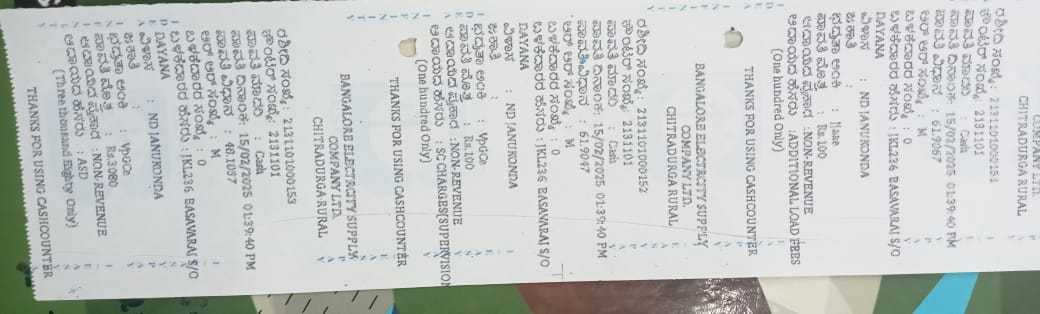 COMPANY LTD.
CHITRADURGA RURAL
ರಶೀದಿ ಸಂಖ್ಯೆ: 2131101000151
ಕೌಂಟರ್ ಸಂಖ್ಯೆ: 2131101
ಪಾವತಿ ಮಾದರಿ : Cash
ಪಾವತಿ ದಿನಾಂಕ: 15/02/2025 01:39:40 PM
ಪಾವತಿ ವಿಧಾನ : 61.9067
ಆರ್ ಆರ್ ಸಂಖ್ಯೆ: M
ಬಳಕೆದಾರರ ಸಂಖ್ಯೆ : 0
ಬಳಕೆದಾರರ ಹೆಸರು : JKL236 BASAVARAJ S/O
DAYANA
ವಿಳಾಸ : ND JANUKONDA
ಜಕಾತಿ :
ಭದ್ರತಾ ಅಂಕಿ :
ಪಾವತಿ ಮೊತ್ತ : Rs.100
ಆದಾಯದ ಪ್ರಕಾರ :NON-REVENUE
ಆದಾಯದ ಹೆಸರು :ADDITIONAL LOAD FEES
(One hundred Only)
THANKS FOR USING CASHCOUNTER
BANGALORE ELECTRICITY SUPPLY
COMPANY LTD.
CHITRADURGA RURAL
ರಶೀದಿ ಸಂಖ್ಯೆ: 2131101000152
ಕೌಂಟರ್ ಸಂಖ್ಯೆ: 2131101
ಪಾವತಿ ಮಾದರಿ : Cash
ಪಾವತಿ ದಿನಾಂಕ: 15/02/2025 01:39:40 PM
ಪಾವತಿ ವಿಧಾನ : 61.9067
ಆರ್ ಆರ್ ಸಂಖ್ಯೆ: M
ಬಳಕೆದಾರರ ಸಂಖ್ಯೆ : 0
ಬಳಕೆದಾರರ ಹೆಸರು : JKL236 BASAVARAJ S/O
DAYANA
ವಿಳಾಸ : ND JANUKONDA
ಜಕಾತಿ :
ಭದ್ರತಾ ಅಂಕಿ :
ಪಾವತಿ ಮೊತ್ತ : Rs.100
ಆದಾಯದ ಪ್ರಕಾರ :NON-REVENUE
ಆದಾಯದ ಹೆಸರು : SC CHARGES(SUPERVISION
(One hundred Only)
THANKS FOR USING CASHCOUNTER
BANGALORE ELECTRICITY SUPPLY
COMPANY LTD.
CHITRADURGA RURAL
ರಶೀದಿ ಸಂಖ್ಯೆ: 2131101000153
ಕೌಂಟರ್ ಸಂಖ್ಯೆ: 2131101
ಪಾವತಿ ಮಾದರಿ : Cash
ಪಾವತಿ ದಿನಾಂಕ: 15/02/2025 01:39:40 PM
ಪಾವತಿ ವಿಧಾನ : 48.1037
ಆರ್ ಆರ್ ಸಂಖ್ಯೆ: M
ಬಳಕೆದಾರರ ಸಂಖ್ಯೆ : 0
ಬಳಕೆದಾರರ ಹೆಸರು : JKL236 BASAVARAJ S/O
DAYANA
ವಿಳಾಸ : ND JANUKONDA
ಜಕಾತಿ :
ಭದ್ರತಾ ಅಂಕಿ :
ಪಾವತಿ ಮೊತ್ತ : Rs.3080
ಆದಾಯದ ಪ್ರಕಾರ :NON-REVENUE
ಆದಾಯದ ಹೆಸರು : ASD
(Three thousand Eighty Only)
THANKS FOR USING CASHCOUNTER